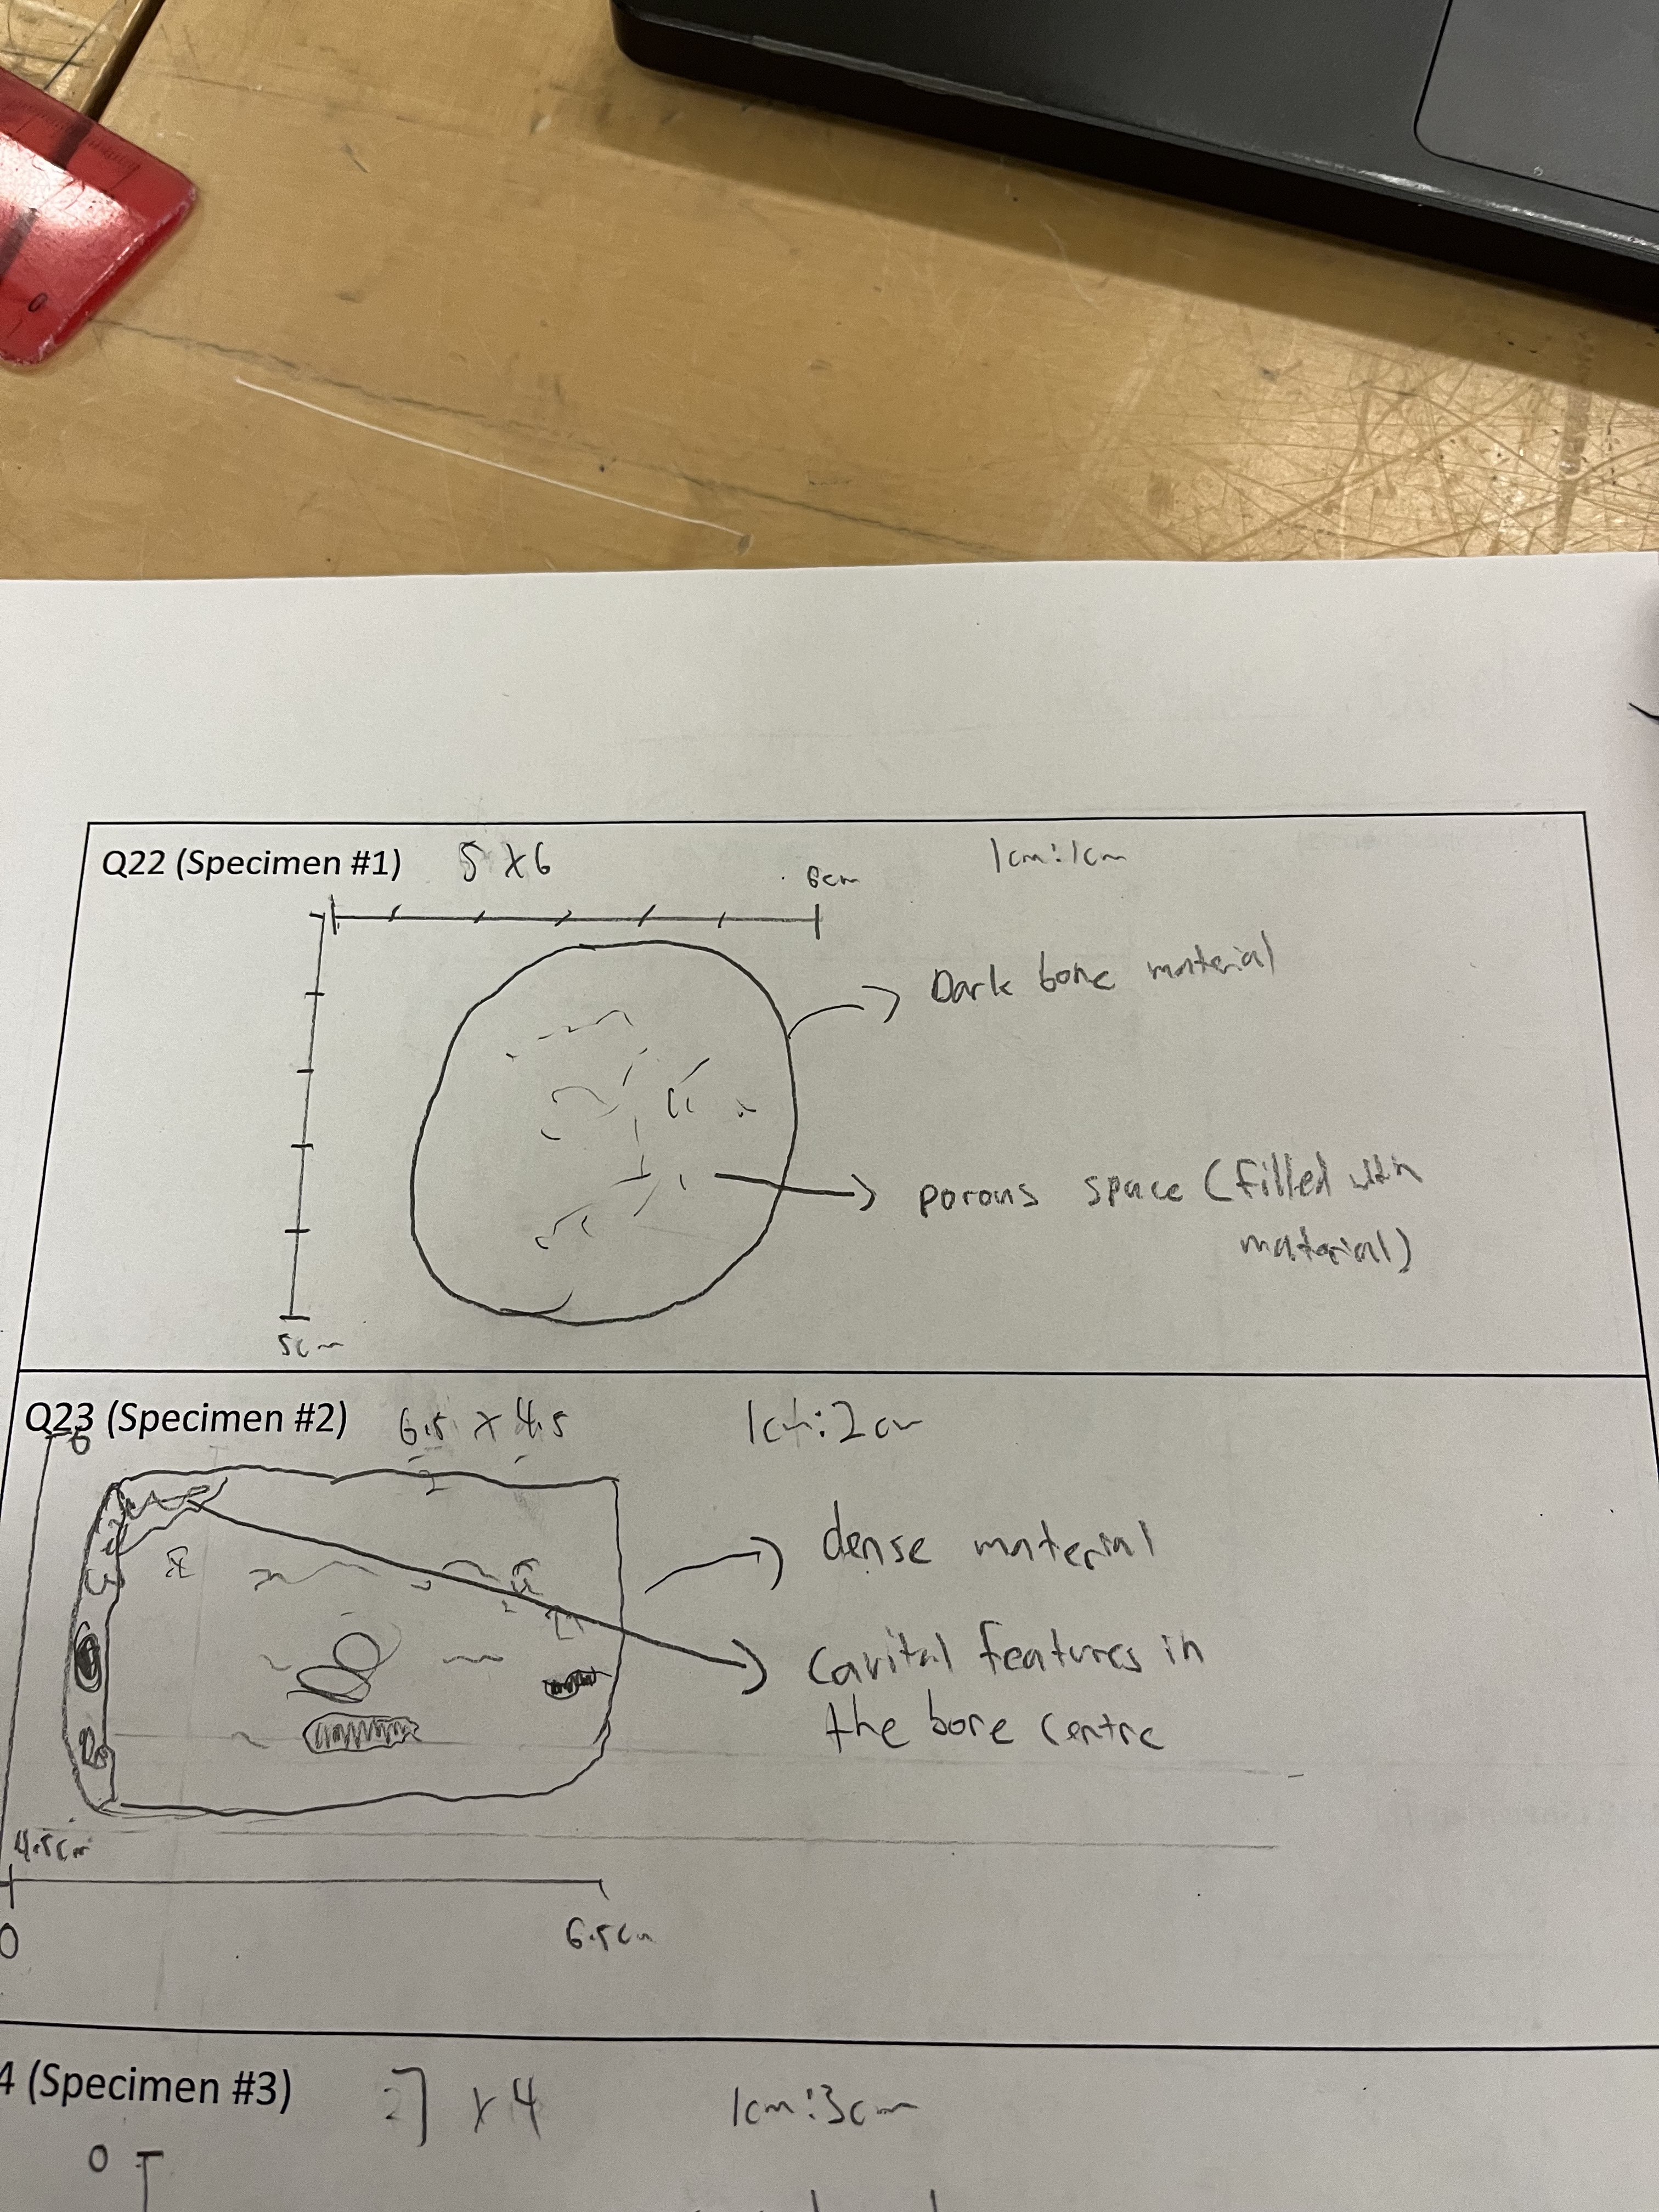 0
Q22 (Specimen #1) 5 x 6 1cm:1cm
6cm
Dark bone material
porous space (filled with
material)
5cm
Q23 (Specimen #2) 6.5 x 4.5 1cm:2cm
0
dense material
features in
the bone centre
4.5cm
0
6.5cm
4 (Specimen #3) x 4 1cm:3cm
0